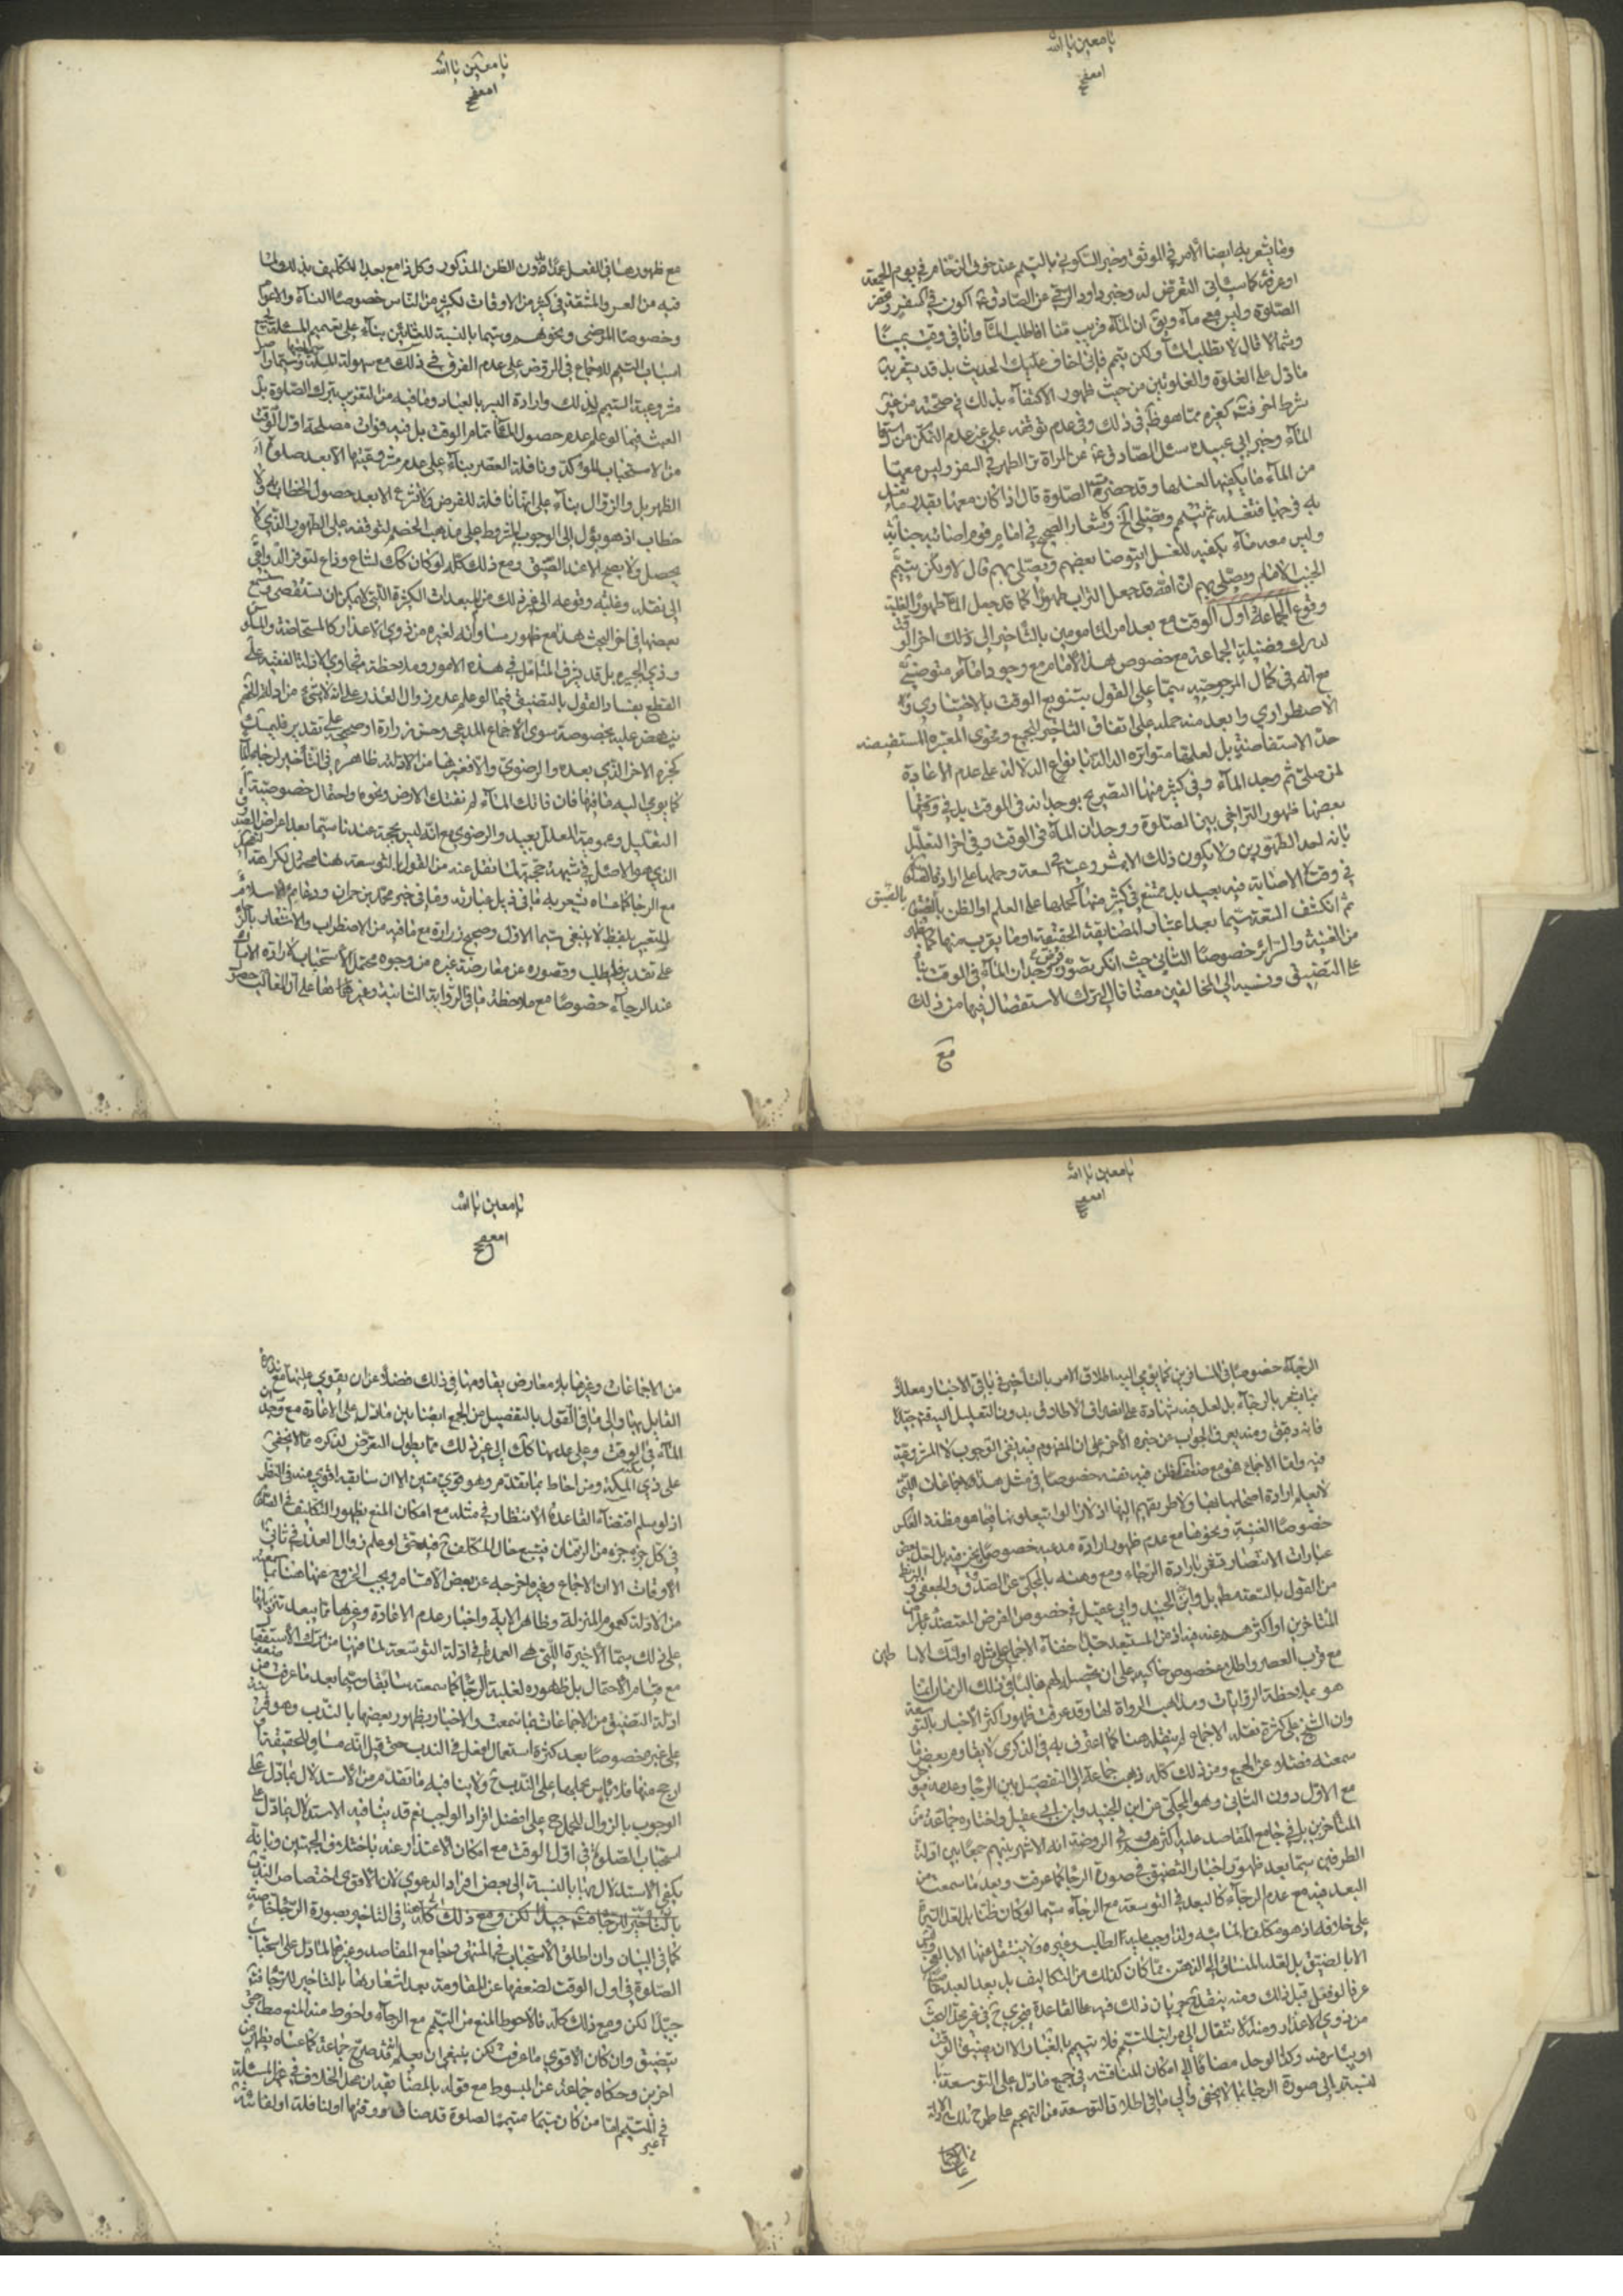 يا معين يا الله
ومما يشعر به ايضا الامر في الموثق وخبر السكوني بالتيمم عند خوف الزحام في يوم الجمعة
او عرفة كما سيأتي التعرض له وخبر داود الرقي عن الصادق ع اكون في السفر وتحضر
الصلوة وليس معي ماء ويق ان الماء قريب منا افاطلب الماء وانا في وقت يمينا
وشمالا قال لا تطلب الماء ولكن تيمم فاني اخاف عليك الحديث بل قد يشعر به
ما دل على الغلوة والغلوتين من حيث ظهور الاكتفاء بذلك في صحته من غير
شرط اخر
الماء وخبر ابي عبيدة سئل الصادق ع عن المراة ترى الطهر في السفر وليس معها
من الماء ما يكفيها لغسلها وقد حضرت الصلوة قال اذا كان معها بقدر ما تغسل
به فرجها فتغسله ثم تتيمم وتصلي الخ وكاشعار الصحيح في امام قوم اصابته جنابة
وليس معه ماء يكفيه للغسل ايتوضا بعضهم ويصلي بهم قال لا ولكن يتيمم
الجنب الامام ويصلي بهم ان الله قد جعل التراب طهورا كما قد جعل الماء طهورا لغلبة
وقوع الجماعة اول الوقت مع بعد امر المامومين بالتاخير الى ذلك اخر الوقت
لدرك فضيلة الجماعة مع خصوص هذا الامام مع وجود امام متوضئ
مع انه في كمال المرجوحية سيما على القول بتنويع الوقت بالاختياري و
الاضطراري وابعد منه حمله على اتفاق التاخير للجميع وفحوى المعتبرة المستفيضة
حد الاستفاضة بل لعلها متواترة الدالة بانواع الدلالة على عدم الاعادة
لمن صلى ثم وجد الماء وفي كثير منها التصريح بوجدانه في الوقت بل في
بعضها ظهور التراخي بين الصلوة ووجدان الماء في الوقت وفي اخر التعليل
بانه احد الطهورين ولا يكون ذلك الا بمشروعيته في السعة وحملها على ارادة الصلوة
في وقت الاصابة فيه بعيد بل ممتنع في كثير منها كحملها على العلم او الظن بالضيق
ثم انكشف السعة سيما بعد اعتبار المضايقة الحقيقية او ما يقرب منها كما
من الغنية والسرائر خصوصا الثاني حيث انكر تصور فرض وجدان الماء في الوقت
على التضيق ونسبه الى المخالفين مضافا الى ترك الاستفصال فيها من ذلك
مع
يا معين يا الله
مع ظهورها في الفعل عمدا دون الظن المذكور وكل ذا مع بعد التكليف بذلك ولما
فيه من العسر والمشقة في كثير من الاوقات لكثير من الناس خصوصا النساء والاعوام
وخصوصا المرضى ونحوهم وسيما بالنسبة للعشائين بناء على تعميم المسئلة لجميع
اسباب التيمم للاجماع في الروض على عدم الفرق في ذلك مع سهولة الملة وسماحتها
مشروعية التيمم لذلك وارادة اليسر بالعباد وما فيه من التغرير بترك الصلوة بل
العبث فيما لو علم عدم حصول الماء تمام الوقت بل فيه فوات مصلحة اول الوقت
من الاستحباب المؤكد ونافلة العصر بناء على عدم مشروعيتها الا بعد صلوة
الظهر بل والزوال بناء على انها نافلة للفرض ولا تشرع الا بعد حصول الخطاب به ولا
خطاب اذ هو يؤل الى الوجوب المشروط على مذهب الخصم لتوقفه على الطهور الذي لا
يحصل ولا يصح الا عند الضيق ومع ذلك كله لو كان كك لشاع وذاع لتوفر الدواعي
الى نقله وغلبة وقوعه الى غير ذلك من المبعدات الكثيرة التي لا يمكن ان تستقصى
بعضها في اخر البحث هذا مع ظهور مساواته لغيره من ذوي الاعذار كالمستحاضة والمسلوس
وذي الجبيرة بل قد يشرف المتامل في هذه الامور وملاحظة فحاوي الادلة الفقيه على
القطع بفساد القول بالتضيق فيما لو علم عدم زوال العذر على انه لا شيء من ادلة الخصم
ينهض عليه بخصوصه سوى الاجماع المدعى وحسن زرارة او صحيحه على تقدير فليمسك
كخبره الاخر الذي بعده والرضوي والا فغيرها من الادلة ظاهرة في التاخير لرجاء الماء
كما يومي اليه ما فيها فان فاتك الماء لم تفتك الارض ونحوه واحتمال خصوصية
التعليل وعمومية المعلل بعيد والرضوي مع انه ليس بحجة عندنا سيما بعد اعراض الصدوق
الذي هو الاصل في شبهة حجيته لما نقل عنه من القول بالتوسعة هنا محتمل لكراهة
مع الرجا كما عساه يشعر به ما في ذيل عبارته وما في خبر محمد بن حمران ودعائم الاسلام
للتعبير بلفظ لا ينبغي سيما الاول وصحيح زرارة مع ما فيه من الاضطراب والاشعار بالرجاء
على تقدير فليطلب وقصوره عن معارضة غيره من وجوه محتمل الاستحباب لارادة الاياس
عند الرجاء خصوصا مع ملاحظة ما في الرواية الثانية وغيرها مما على ان الغالب حصول
يا معين يا الله
الرجاء خصوصا في المسافرين كما يومي اليه اطلاق الامر بالتاخير في باقي الاخبار معللا
بما يشعر بالرجاء بل لعل فيه شهادة على انصراف الاطلاق بدون التعليل اليه فتامل جيدا
فانه دقيق ومنه يعرف الجواب عن خبره الاخر على ان المفهوم فيه نفي الوجوب لا المشروعية
فيه واما الاجماع فهو مع ضعف الظن فيه نفسه خصوصا في مثل هذه الاجماعات التي
لا نعلم ارادة اصحابها لها ولا طريقهم اليها اذ لا زالوا يتبعونها فيما هو مظنة الفكر
خصوصا الغنية ونحوها مع عدم ظهور ارادة مدعيه خصوص ما نحن فيه بل لعل بعض
عبارات الانتصار تشعر بارادة الرجاء ومع وهنه بالمحكي عن الصدوق والجعفي
من القول بالسعة مطلقا بل وابن الجنيد وابي عقيل في خصوص الفرض المعتضد بمصير
المتاخرين او اكثرهم عنه فيه اذ من المستبعد جدا خفاء الاجماع على مثل اولئك الاساطين
مع قرب العصر واطلاع خصوص حاكيه على ان تحصيلهم غالبا في ذلك الزمان انما
هو بملاحظة الروايات ومذاهب الرواة لها وقد عرفت ظهور اكثر الاخبار بالتوسعة
وان الشيخ على كثرة نقله الاجماع لم ينقله هنا كما اعترف به في الذكرى لا يقاوم بعض ما
سمعته فضلا عن الجميع ومن ذلك كله ذهب جماعة الى التفصيل بين الرجا وعدمه فيو
مع الاول دون الثاني وهو المحكي عن ابن الجنيد وابن ابي عقيل واختاره جماعة من
المتاخرين بل في جامع المقاصد عليه اكثرهم وفي الروضة انه الاشهر بينهم جمعا بين ادلة
الطرفين سيما بعد ظهور اخبار التضيق في صورة الرجا كما عرفت وبعد ما سمعت من
البعد فيه مع عدم الرجاء كالبعد في التوسعة مع الرجاء سيما لو كان ظنا بل لعل السيرة
على خلافه اذ هو مكلف بالمائية ولذا وجب عليه الطلب وغيره ولا ينتقل منها الا بالعجز
الا بالضيق بل لعله المنساق الى الذهن مما كان كذلك من التكاليف بل يعد العبد عاصيا
عرفا لو فعل قبل ذلك ومنه ينقدح جريان ذلك فيه على القاعدة فيجري في غير محل البحث
من ذوي الاعذار ومنه لا انتقال الى مراتب التيمم فلا تيمم بالغبار الا ان يضيق الوقت
او يياس منه وكذا الوحل مضافا الى امكان المناقشة في جميع ما دل على التوسعة
لنسبته الى صورة الرجا بما لا يخفى والى ما في اطلاق التوسعة من التهجم على طرح تلك الادلة
يا معين يا الله
من الاجماعات وغيرها بلا معارض يقاومها في ذلك فضلا عن ان يقوى عليها مع ندرة
القائل بها والى ما في القول بالتفصيل من الجمع ايضا بين ما دل على الاعادة مع وجدان
الماء في الوقت وعلى عدمها كك الى غير ذلك مما يطول التعرض لذكره مما لا يخفى
على ذي المسكة ومن احاط بما تقدم وهو قوي متين الا ان سابقه اقوى منه في النظر
اذ لو سلم اقتضاء القاعدة الانتظار في مثله مع امكان المنع بظهور التكليف في
في كل جزء جزء من الزمان فيتبع حال المكلف ح فيه حتى لو علم زوال العذر في ثاني
الاوقات الا ان الاجماع وغيره اخرجه عن بعض الاقسام ويجب الخروج عنها هنا بما سمعته
من الادلة كعموم المنزلة وظاهر الاية واخبار عدم الاعادة وغيرها مما يبعد تنزيلها
على ذلك سيما الاخيرة التي هي العمدة في ادلة التوسعة لما فيها من ترك الاستفصال
مع قيام الاحتمال بل ظهوره لغلبة الرجا كما سمعته سابقا وسيما بعد ما عرفت من
ادلة التضيق من الاجماعات بما سمعت والاخبار بظهور بعضها بالندب وهو
على غيره خصوصا بعد كثرة استعمال افعل في الندب حتى قيل انه مساو للحقيقة
ارجح منها فلا باس بحملها على الندب ح ولا ينافيه ما تقدم من الاستدلال بما دل على
الوجوب بالزوال للحمل ح على افضل افراد الواجب نعم قد ينافيه الاستدلال بما دل على
استحباب الصلوة في اول الوقت مع امكان الاعتذار عنه باختلاف الجهتين وبانه
يكفي الاستدلال بها بالنسبة الى بعض افراد الدعوى لان الاقوى اختصاص الندب
بالتاخير للرجا فتامل جيدا لكن ومع ذلك كله هنا في التاخير بصورة الرجا خاصة
كما في البيان وان اطلق الاستحباب في المنتهى وجامع المقاصد وغيرهما لما دل على استحباب
الصلوة في اول الوقت لضعفها عن المقاومة بعد اشعارها بالتاخير للرجا فتامل
جيدا لكن ومع ذلك كله فالاحوط المنع من التيمم مع الرجاء واحوط منه المنع مطلقا حتى
يتضيق وان كان الاقوى ما عرفت لكن ينبغي ان يعلم انه قد صرح جماعة كما عساه يظهر من
اخرين وحكاه جماعة عن المبسوط مع قوله بالمضايقة ان محل الخلاف في غير المسئلة
في المتيمم اما من كان متيمما لصلوة قد ضاق وقتها او لنافلة او لفائتة